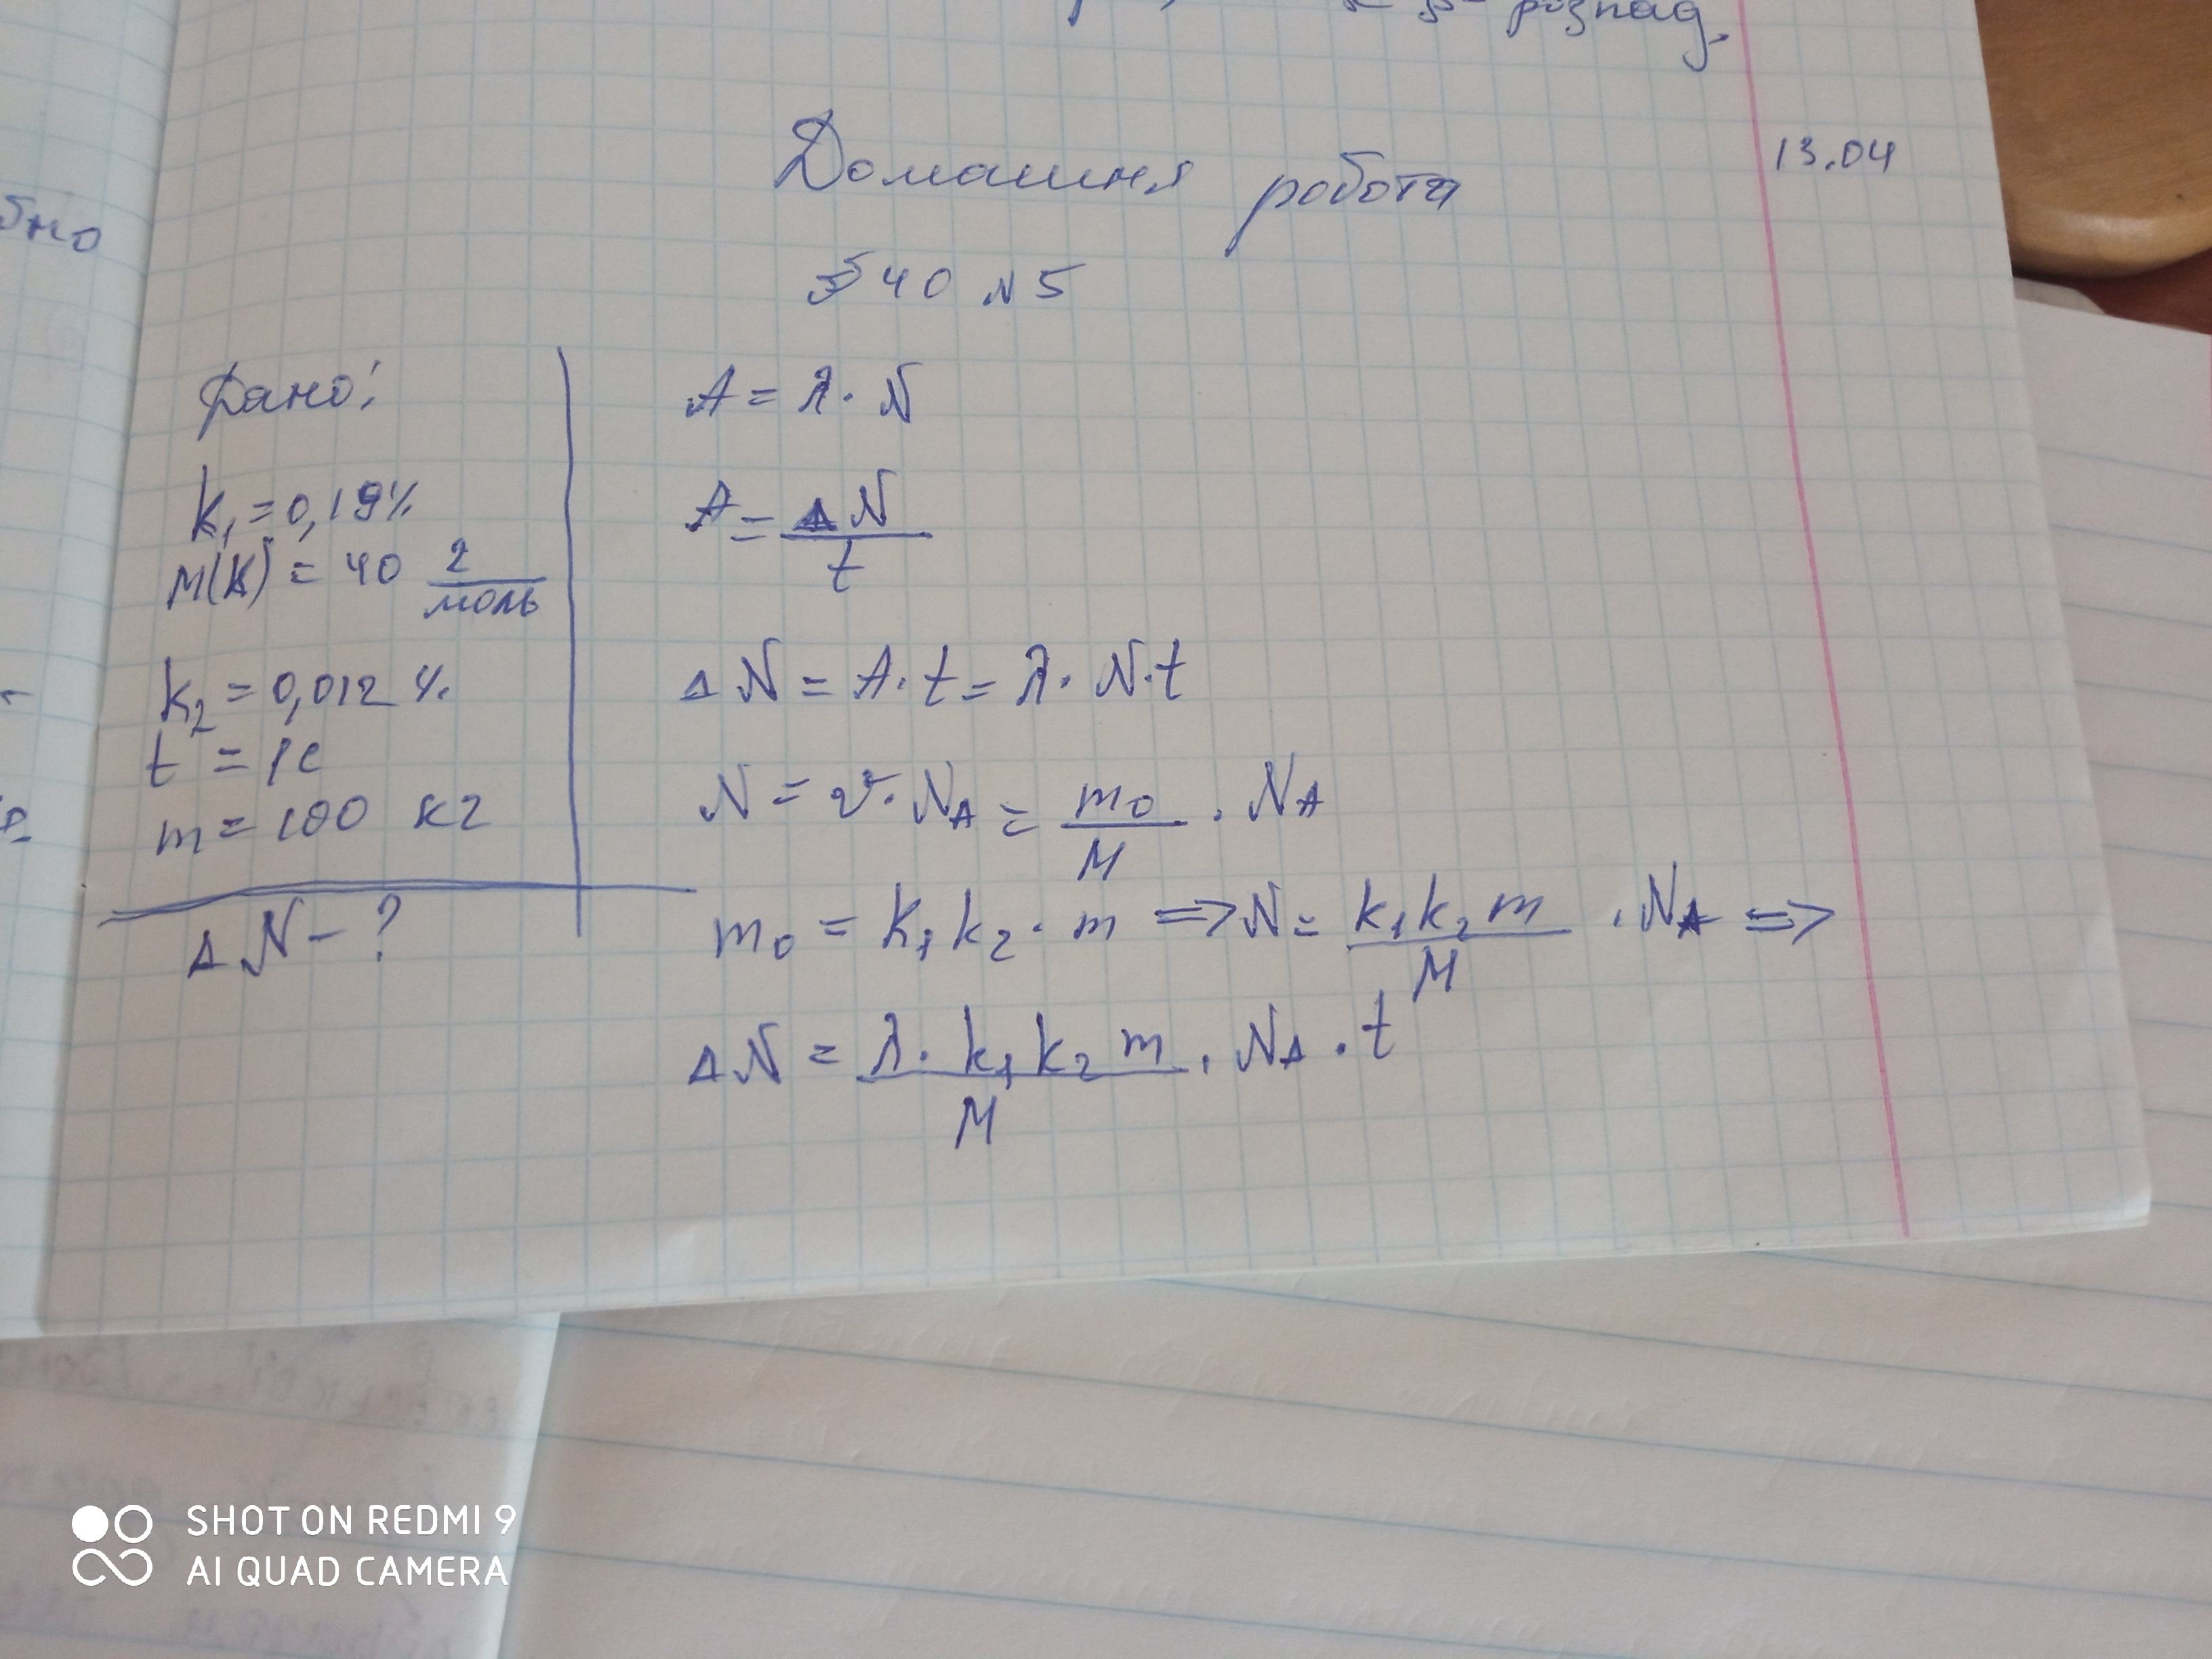 розпад.
Домашня робота
13.04
§ 40 № 5
Дано:
k₁ = 0,19%
M(K) = 40 г/моль
k₂ = 0,012 %
t = 1с
m = 100 кг
ΔN - ?
A = λ · N
A = ΔN/t
ΔN = A · t = λ · N · t
N = ν · N_A = m₀/M · N_A
m₀ = k₁ k₂ · m => N = k₁ k₂ m/M · N_A =>
ΔN = λ · k₁ k₂ m/M · N_A · t
SHOT ON REDMI 9
AI QUAD CAMERA